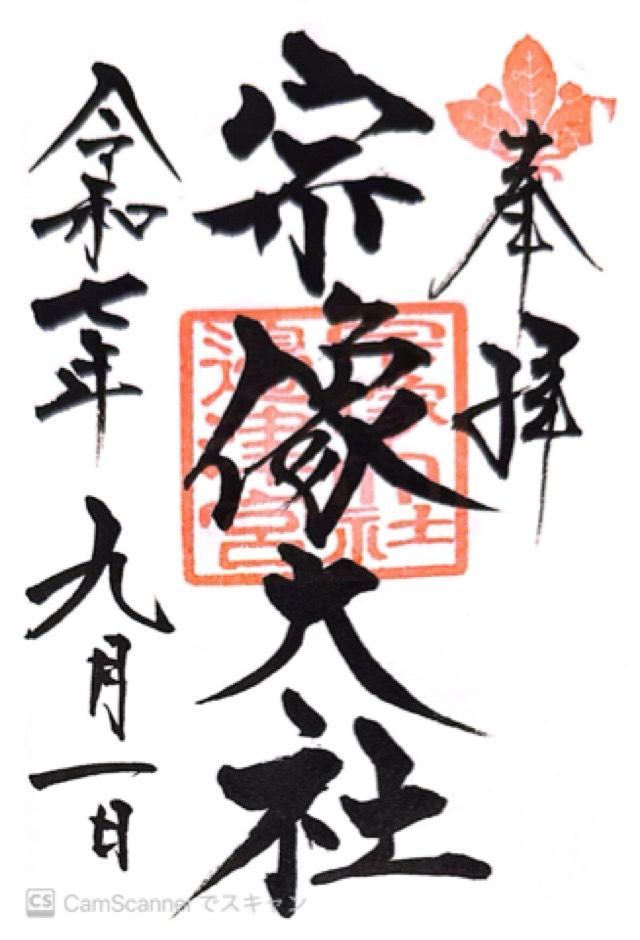 奉拝
宗像大社
令和七年 九月一日
宗像大社
邊津宮
CS CamScannerでスキャン